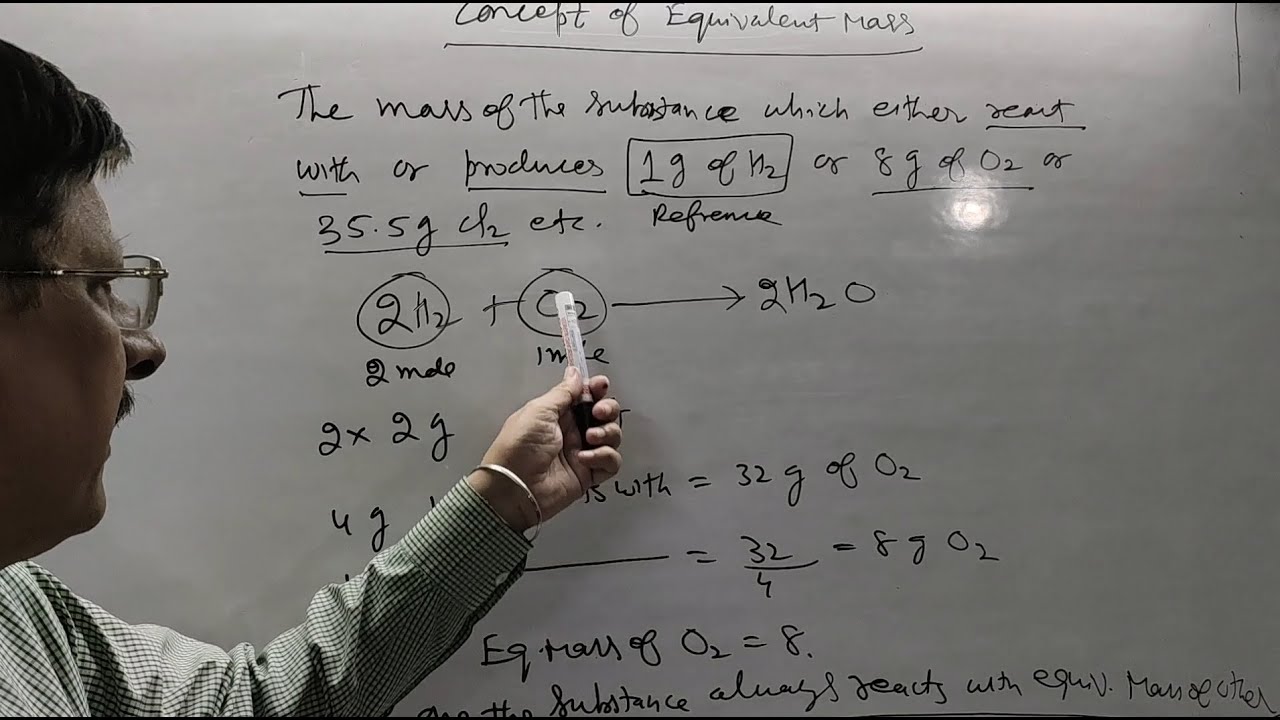 Concept of Equivalent Mass
The mass of the substance which either react
with or produces 1g of H2 or 8g of O2 or
35.5g Cl2 etc. Refrence
2H2 + O2 → 2H2O
2 mole
2x 2g
4g is with = 32 g of O2
= 32/4 = 8 g O2
Eq. Mass of O2 = 8.
one the substance always reacts with equiv. Mass of other